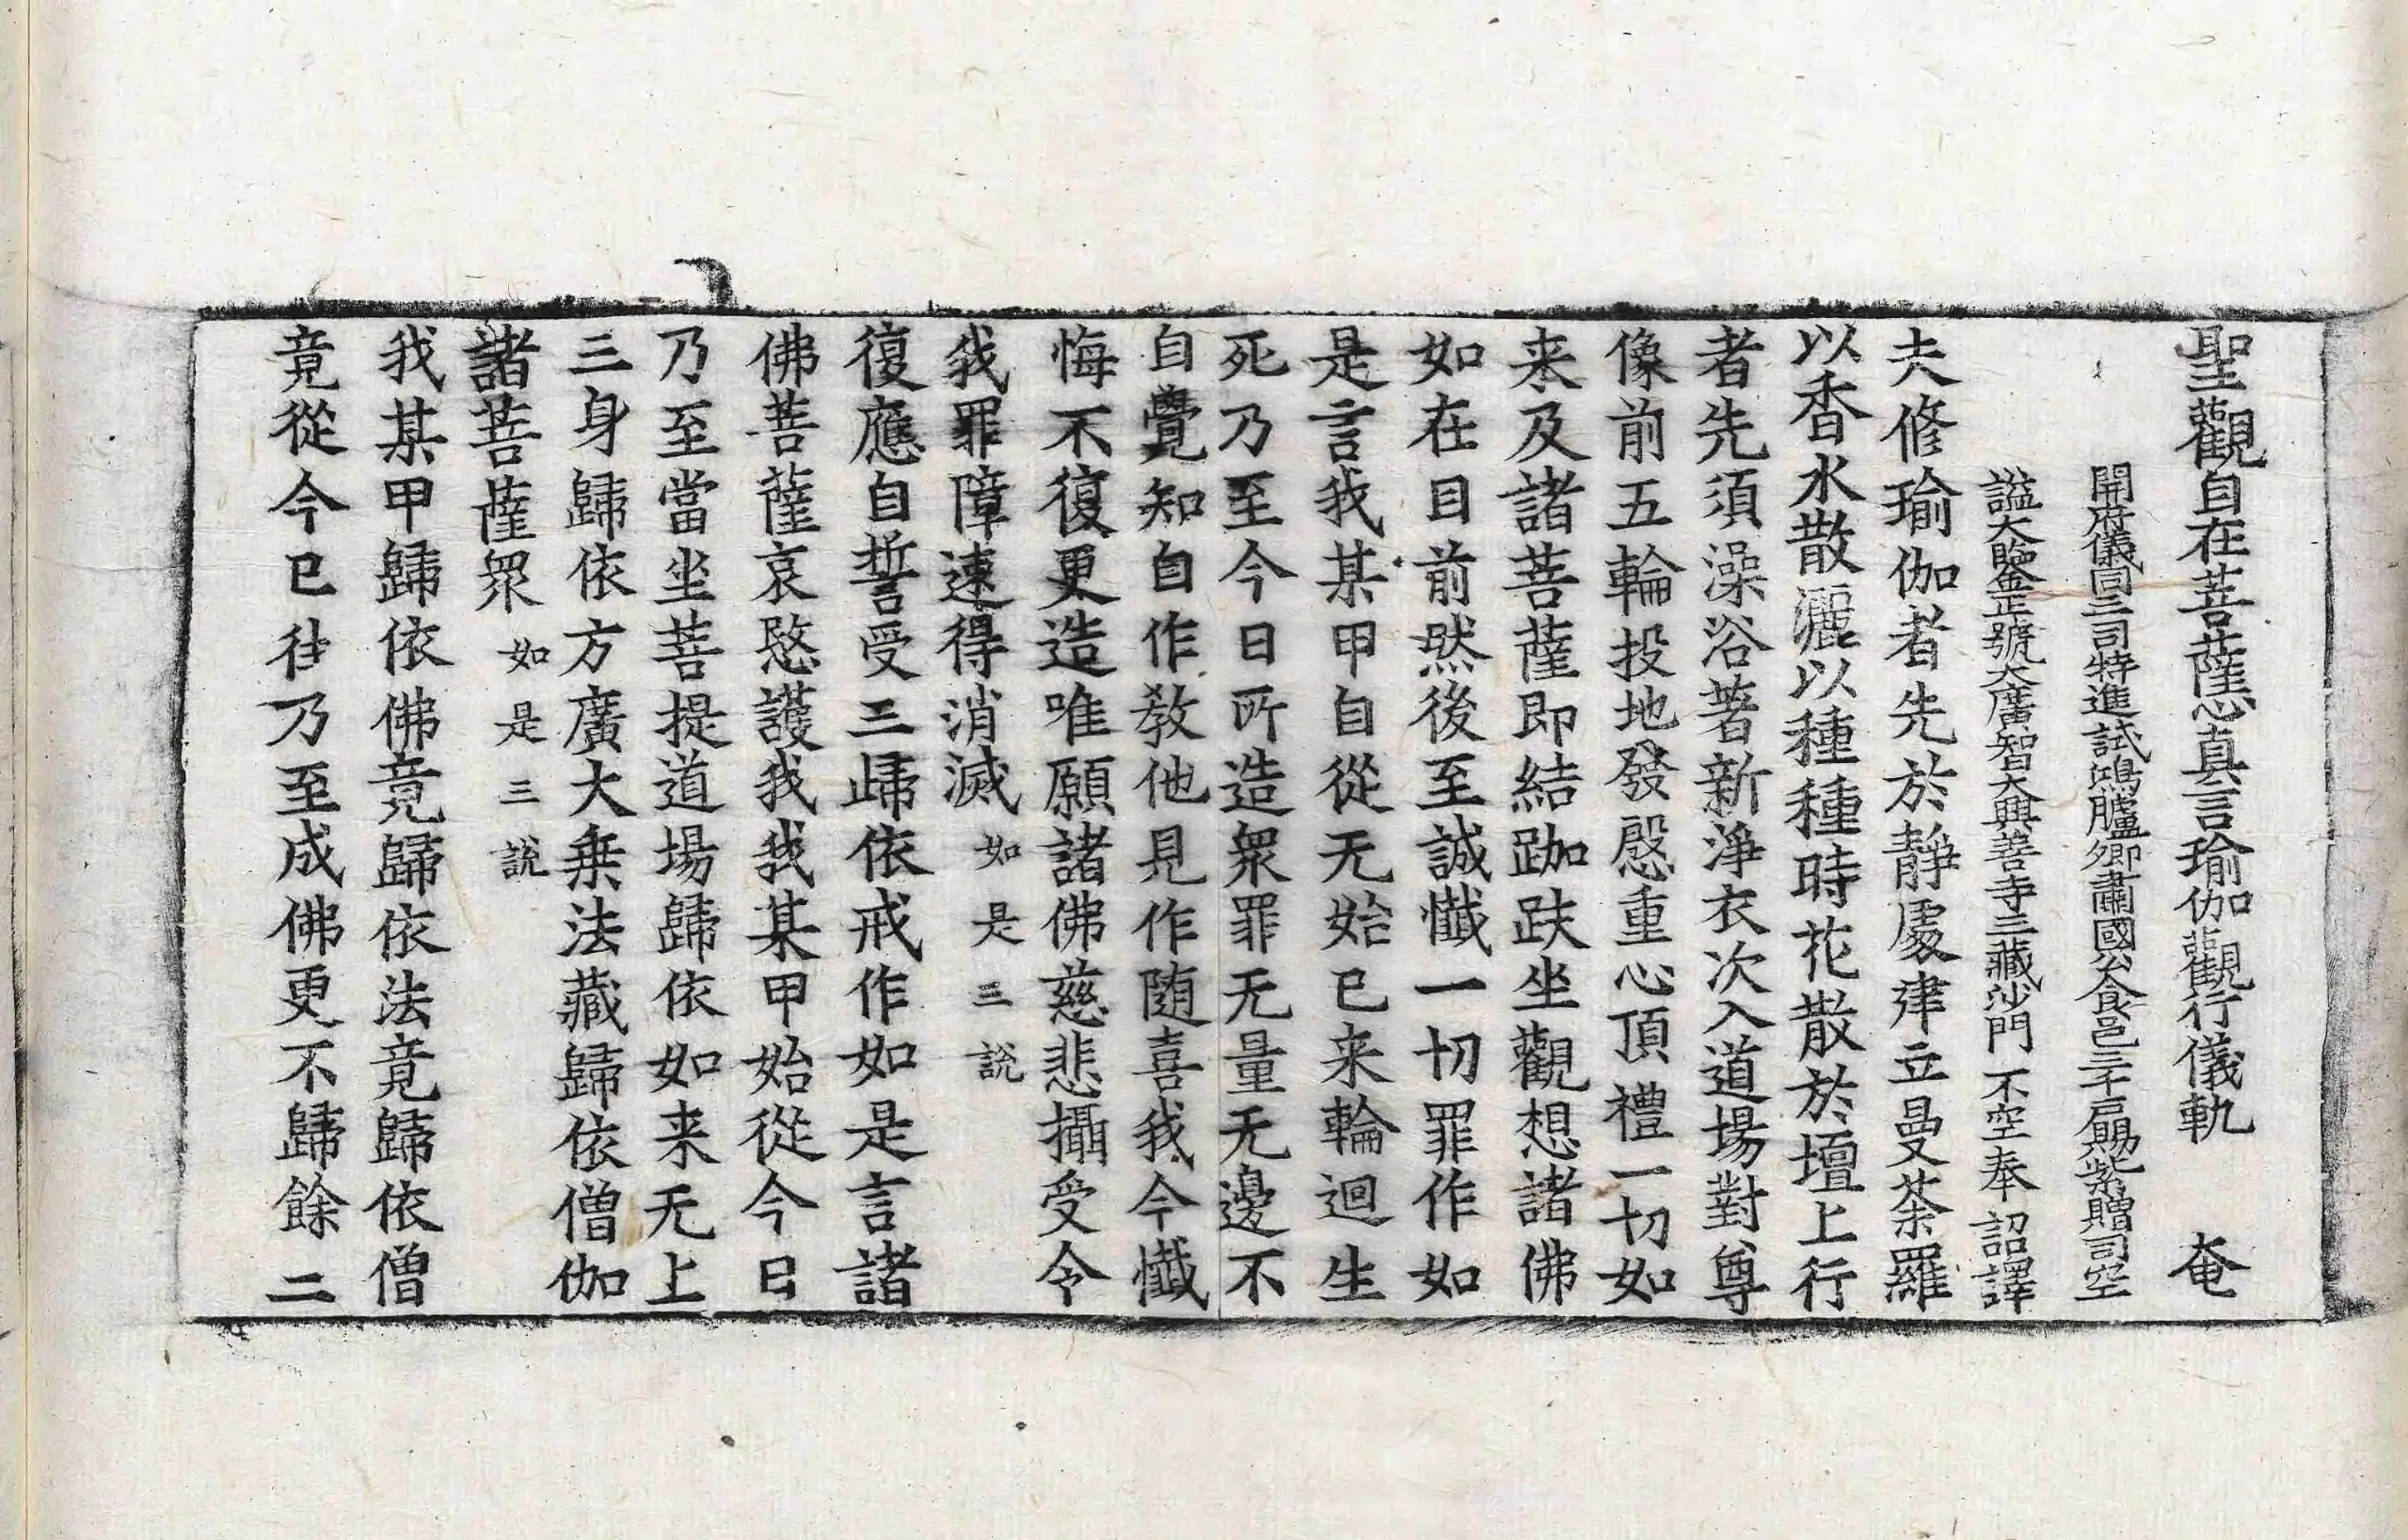 聖觀自在菩薩心真言瑜伽觀行儀軌 奄
開府儀同三司特進試鴻臚卿肅國公食邑三千戶賜紫贈司空
謚大鑒正號大廣智大興善寺三藏沙門 不空奉 詔譯
夫修瑜伽者先於靜處建立曼荼羅
以香水散灑以種種時花散於壇上行
者先須澡浴著新淨衣次入道場對尊
像前五輪投地發慇重心頂禮一切如
来及諸菩薩即結跏趺坐觀想諸佛
如在目前然後至誠懺一切罪作如
是言我某甲自從无始已来輪迴生
死乃至今日所造衆罪无量无邊不
自覺知自作教他見作随喜我今懺
悔不復更造唯願諸佛慈悲攝受令
我罪障速得消滅如是三說
復應自誓受三歸依戒作如是言諸
佛菩薩哀愍護我我某甲始從今日
乃至當坐菩提道場歸依如来无上
三身歸依方廣大乗法藏歸依僧伽
諸菩薩衆如是三說
我某甲歸依佛竟歸依法竟歸依僧
竟從今已往乃至成佛更不歸餘二